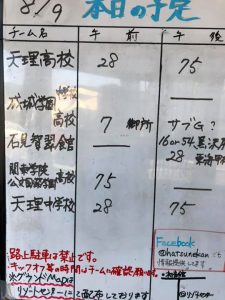 8/9 本日の予定
チーム名 午前 午後
天理高校 28 75
学園 中学校
高校 7 御所 サブG?
石見智翠館 — 16 or 54
28
関東学院
公文国際学園 高校 75 —
天理中学校 28 75
路上駐車は禁止です。
キックオフ等の時間はチームに確認願います。
※グランドMapは
リゾートセンターにて配布しております
Facebook
@hatsunekan にも
情報提供してます